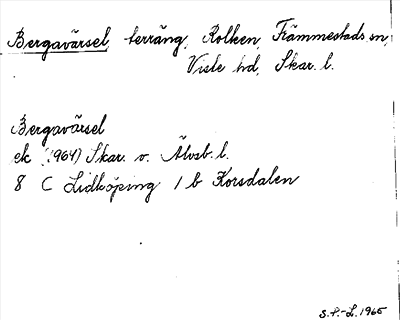 Bergavärsel, terräng, Rolken, Främmestads sn,
Viste hd, Skar. l.
Bergavärsel
ek (1964) Skar. o. Älvsb. l.
8 C Lidköping 1 b Korsdalen
S.F.-L. 1965